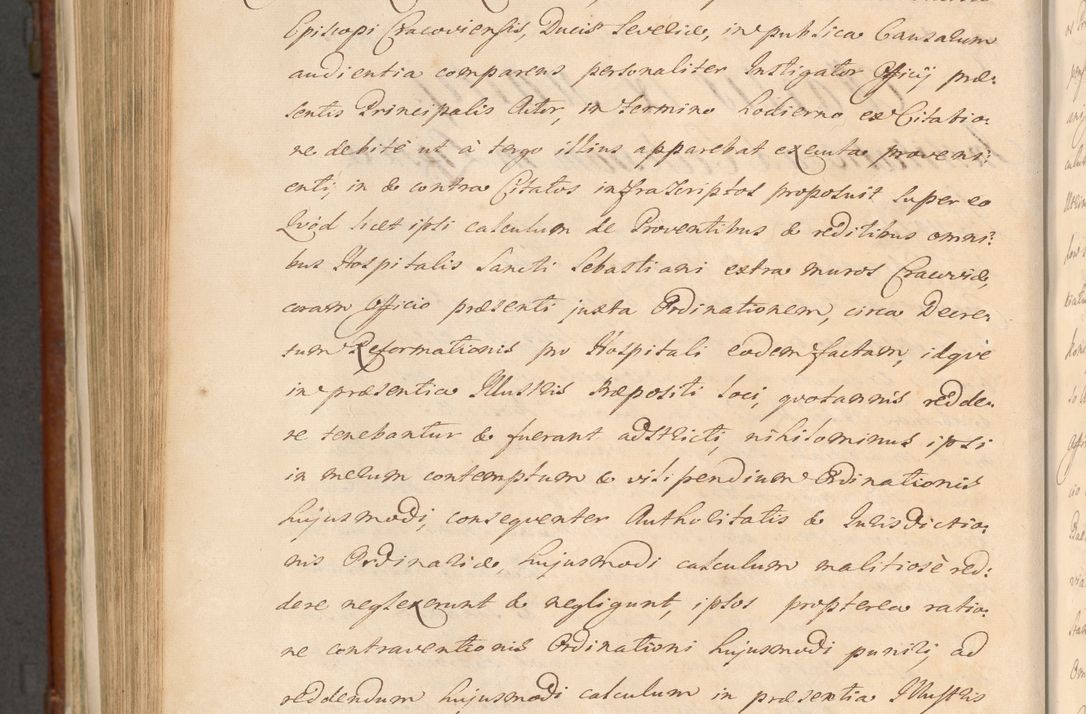 Episcopi Cracoviensis, Ducis Severiæ, in publica Causarum
audientia comparens personaliter Instigator Officij præ:
sentis Principalis Actor, in termino hodierno ex Citatio:
ne debitè ut à tergo illius apparebat executa proveni:
enti, in & contra Citatos infrascriptos proposuit super eo
Qvód licet ipsi calculum de Proventibus & reditibus omni:
bus Hospitalis Sancti Sebastiani extra muros Cracoviæ,
coram Officio præsenti juxta Ordinationem, circa Decre:
tum Reformationis pro Hospitali eodem factam, idqve
in præsentia Illustris Præpositi loci, qvotannis redde:
re tenebantur & fuerant adstricti, nihilominus ipsi
in merum contemptum & vilipendium Ordinationis
hujusmodi, conseqventer Authoritatis & Jurisdictio:
nis Ordinariæ, hujusmodi calculum malitiosè red:
dere neglexerunt & negligunt, ipsos propterea ratio:
ne contraventionis Ordinationi hujusmodi puniri, ad
reddendum hujusmodi calculum in præsentia Illustris